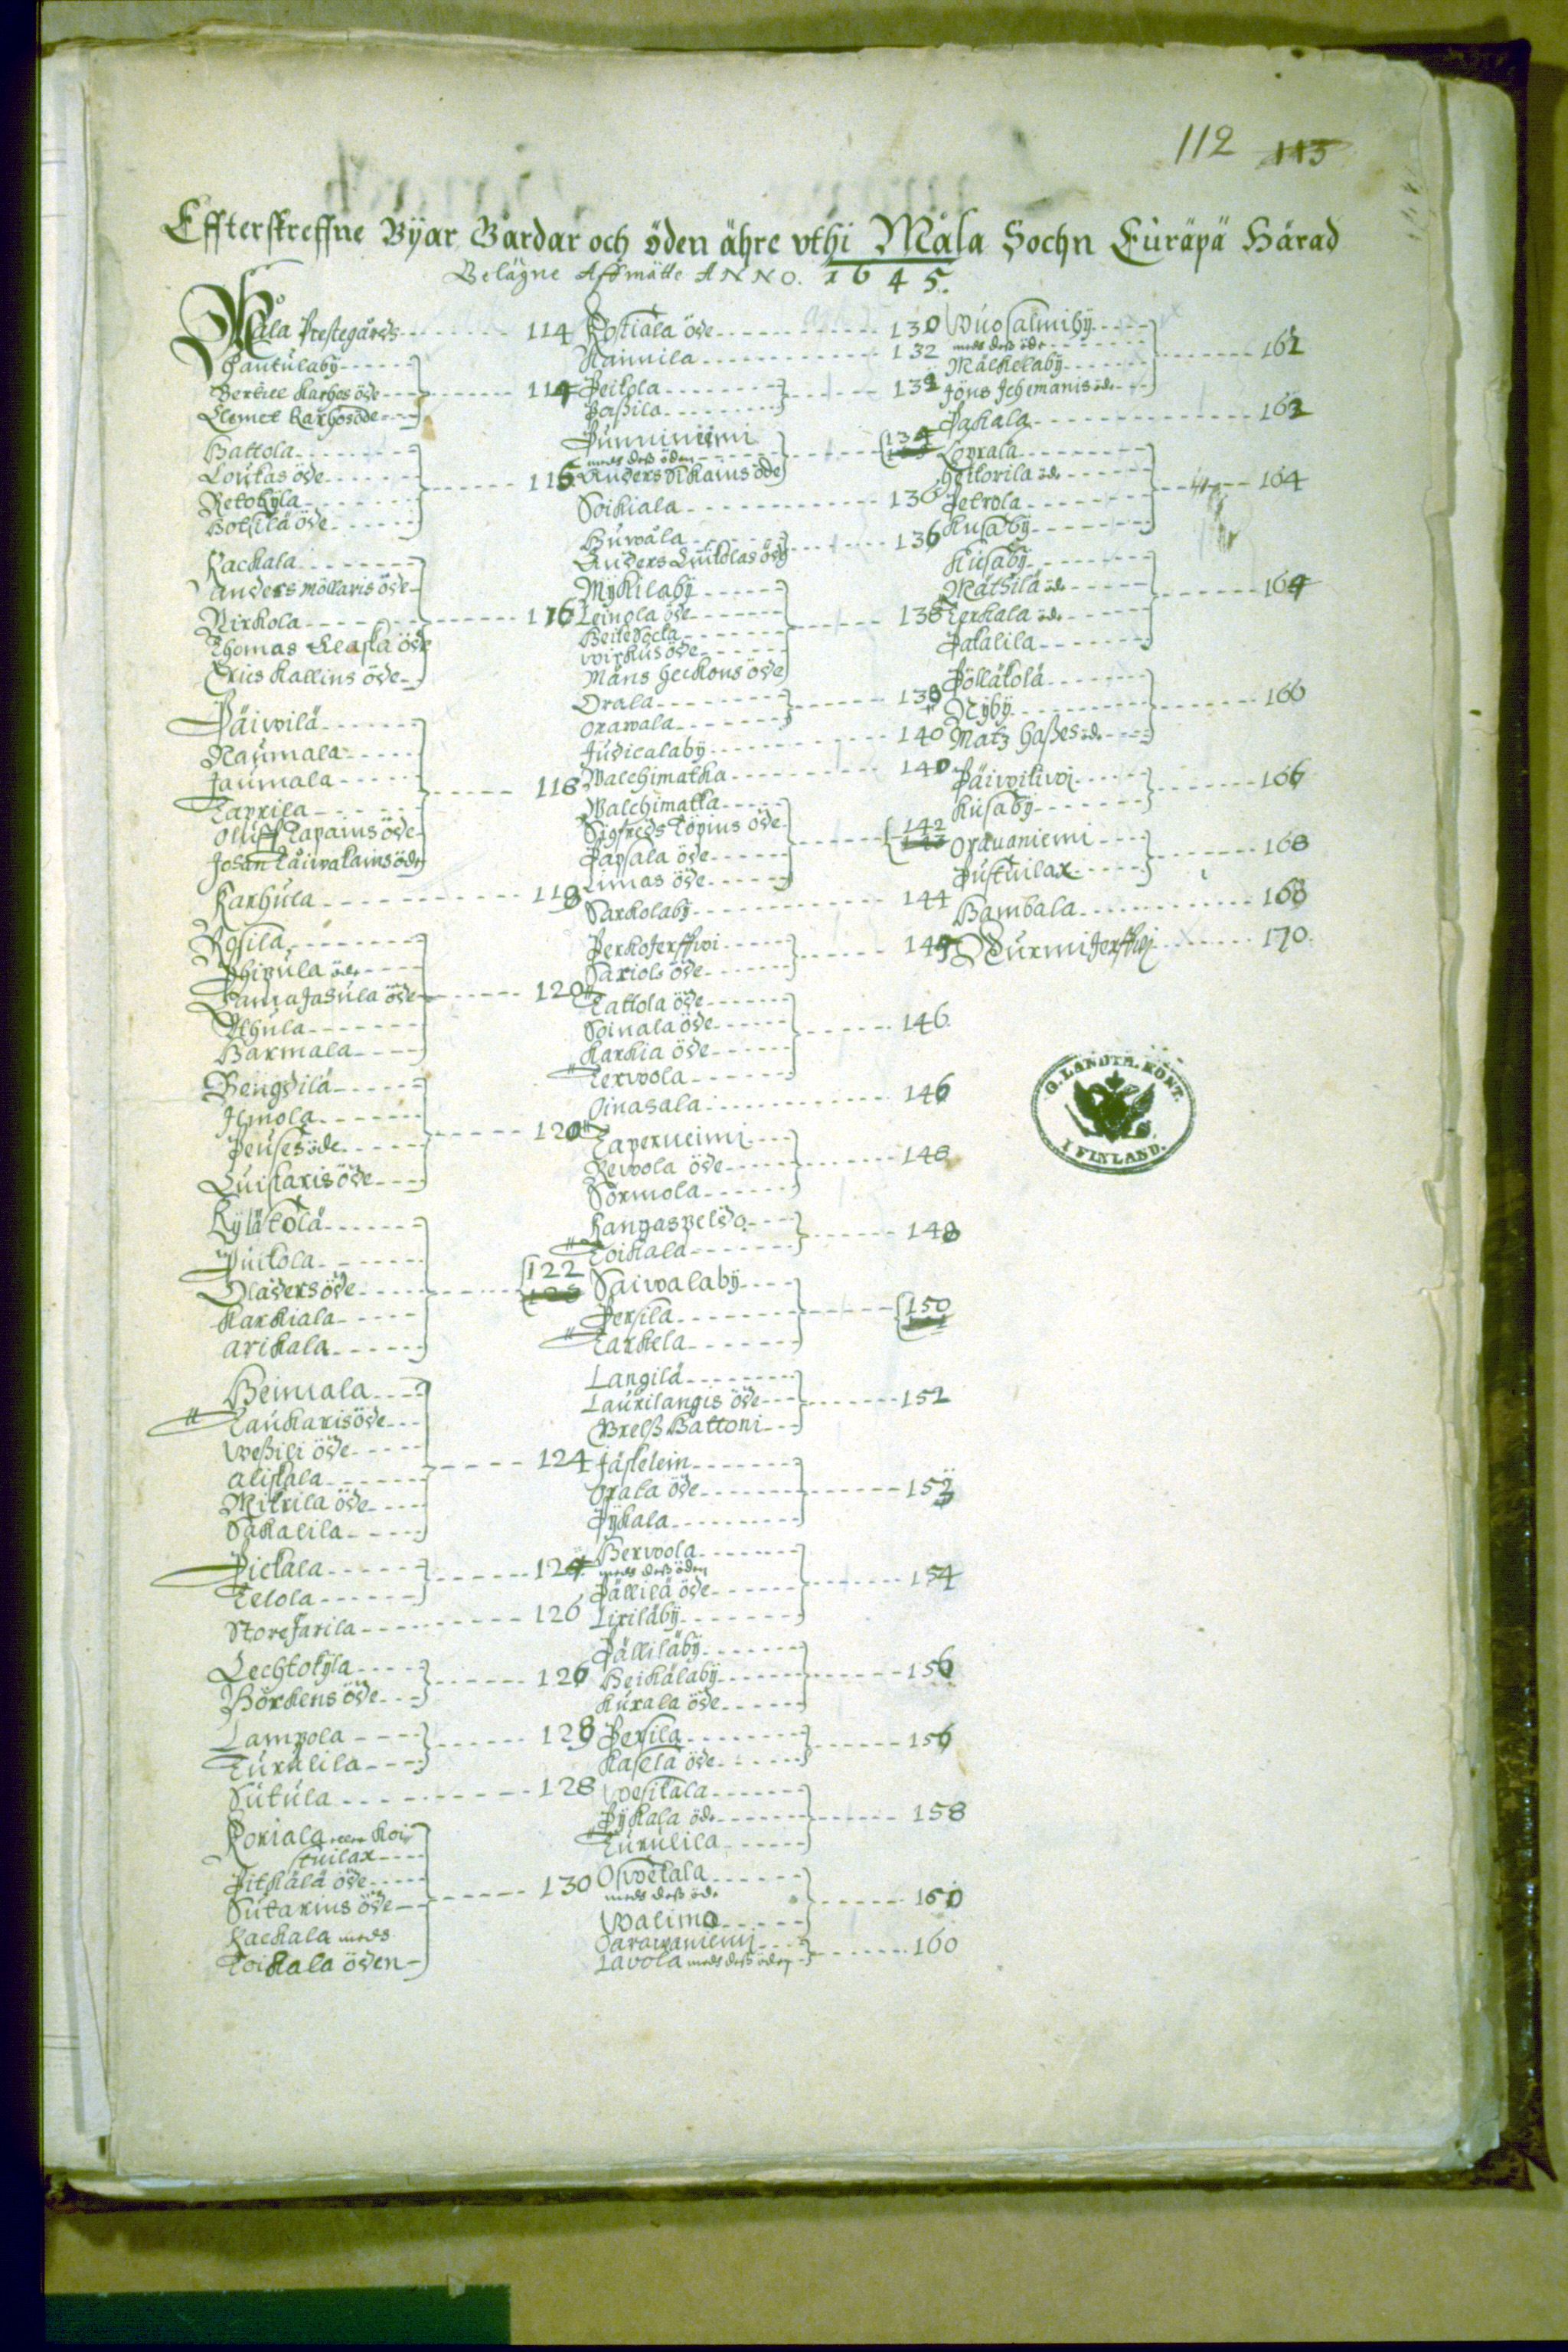 112 113
Effterskreffne Byar Gårdar och öden ähre vthi Måla Sochn Euräpä Härad
Belägne Affmätte ANNO. 1645.
Måla Prestegårds 114
Pautulaby
Bertill Karhos öde 114
Clemet Karhosöde
Hattola
Loukas öde
Retokyla 116
Botsila öde
Kackala
Anders Möllaris öde
Nirkola 116
Thomas öde
Erics Kallins öde
Päiwilä
Naumala
Jaumala
Taprila 118
Oluff Tapains öde
Johan Läiwalains öde
Karhula 118
Rosila
Phipula öde
öde 120
Athula
Barmala
Bengdila
Ilmola
Peuses öde 120
Luistaris öde
Kylätölä
Puikola
Oladers öde 122
Karkiala
Arikala
Heimala
Taukarisöde
Weßili öde
Aliskala 124
Mikrila öde
Sakalila
Pickala 124
Telola
Store Jarila 126
Lechtokyla 126
Börkens öde
Lampola 128
Turulila
Sutula 128
Koriala eller Koi
tuilax
Pitkälä öde
Sutarins öde 130
Kackala meds
Toikala öden
Postiala öde 130
Naimila 132
Peikola 132
Paßila
Punniniemi
meds deß öden 134
Anders Sikains öde
Soikiala 136
Huwala 136
Anders Lukolas öde
Mykilaby
Leinola öde
138
Wirkus öde
Måns Heckons öde
Orala 138
Orawala
Judicalaby 140
Walchimatka 140
Walchimatka
Sigfreds Töpins öde 142
Papsala öde
Limas öde
Sarkolaby 144
Perkojerffwi 144
Sariols öde
Tattola öde
Soinala öde 146
Karkia öde
Terwola
Oinasala 146
Taperniemi
Rewola öde 148
Sormola
Kangaspeldo 148
Toikala
Saiwalaby
Persila 150
Tarkela
Langila
Laurilangis öde 152
Grelß Battoni
Jäskelein
Orala öde 152
Pykala
Herwola
meds deß öden
Pällilä öde 154
Liriläby
Pälliläby
Heikälaby 156
Kurala öde
Persila 156
Kasela öde
Wesikala
Pykala öde 158
Turulila
Oswekala
meds deß öde 160
Walimo
Oarawaniemi 160
Lavola meds deß öden
Wuosalmiby
meds deß öde
Mälkeläby 162
Jöns Ichemanis öde
Pakala 162
Loprala
Heikorila öde 164
Petrola
Kusaby
Kusaby
Mathilä öde 164
Terkala öde
Pakalila
Pöllätolä
Nyby 166
Matz Haßes öde
Päiwikiwi 166
Kusaby
Orauaniemi 168
Pustuilax
Bambala 168
Nurmijerffwi 170
G. LANDTM. KONT.
I FINLAND.